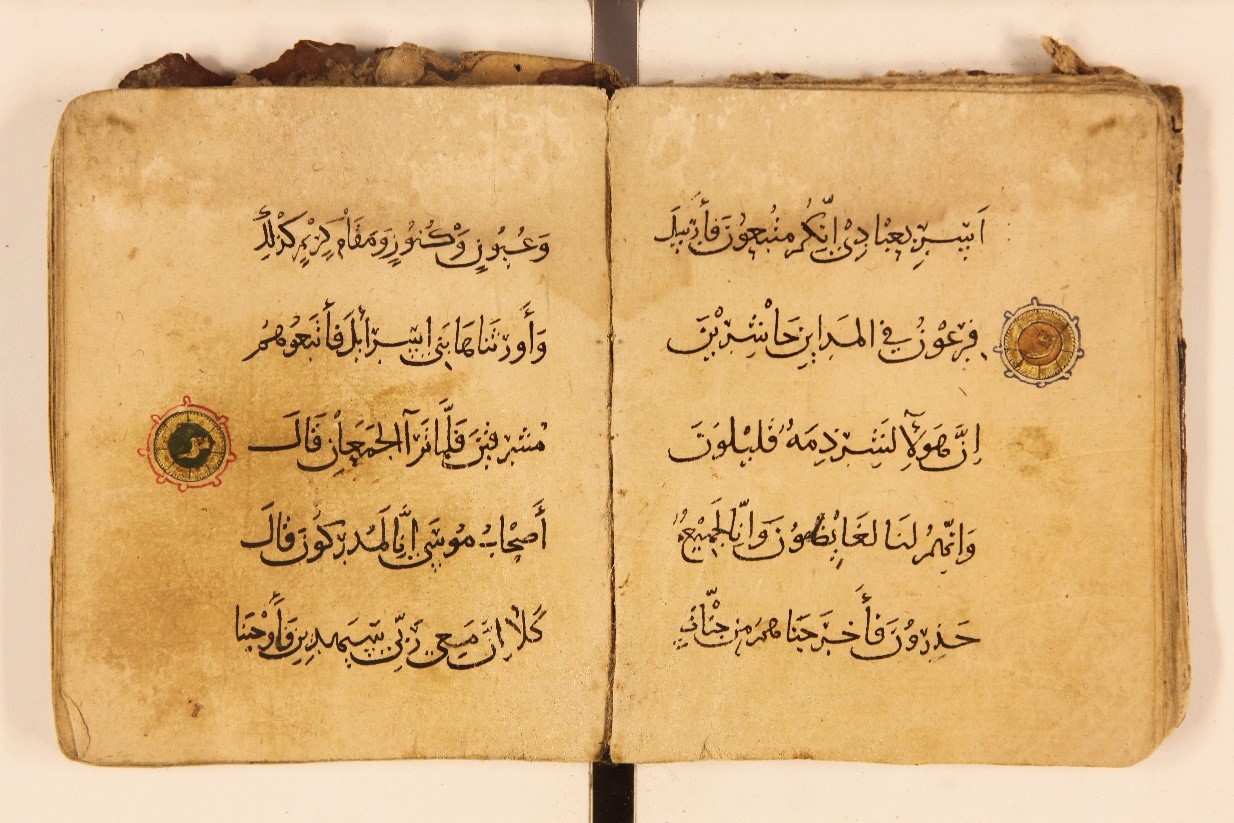 اَنِ اسْرِ بِعِبَادِىْ اِنَّكُمْ مُتَّبَعُوْنَ فَأَرْسَلَ
فِرْعَوْنُ فِي المَدَاينِ حَاشِرِيْنَ
اِنَّ هَولآءِ لَشِرْذِمَةٌ قَلِيْلُوْنَ
وَاِنَّهُمْ لَنَا لَغَائِظُوْنَ وَاِنَّا لَجَمِيْعٌ
حَذِرُوْنَ فَأَخْرَجْنَاهُمْ مِنْ جَنَّاتٍ
وَعُيُوْنٍ وَكُنُوْزٍ وَمَقَامٍ كَرِيْمٍ كَذٰلِكَ
وَأَوْرَثْنَاهَا بَنِي اِسْرَآئِلَ فَأَتْبَعُوهُمْ
مُشْرِقِيْنَ فَلَمَّا تَرَآ الجَمْعَانِ قَالَ
أَصْحَابُ مُوْسَى اِنَّا لَمُدْرَكُوْنَ قَالَ
كَلَّا اِنَّ مَعِي رَبِّي سَيَهْدِيْنِ فَأَوْحَيْنَا